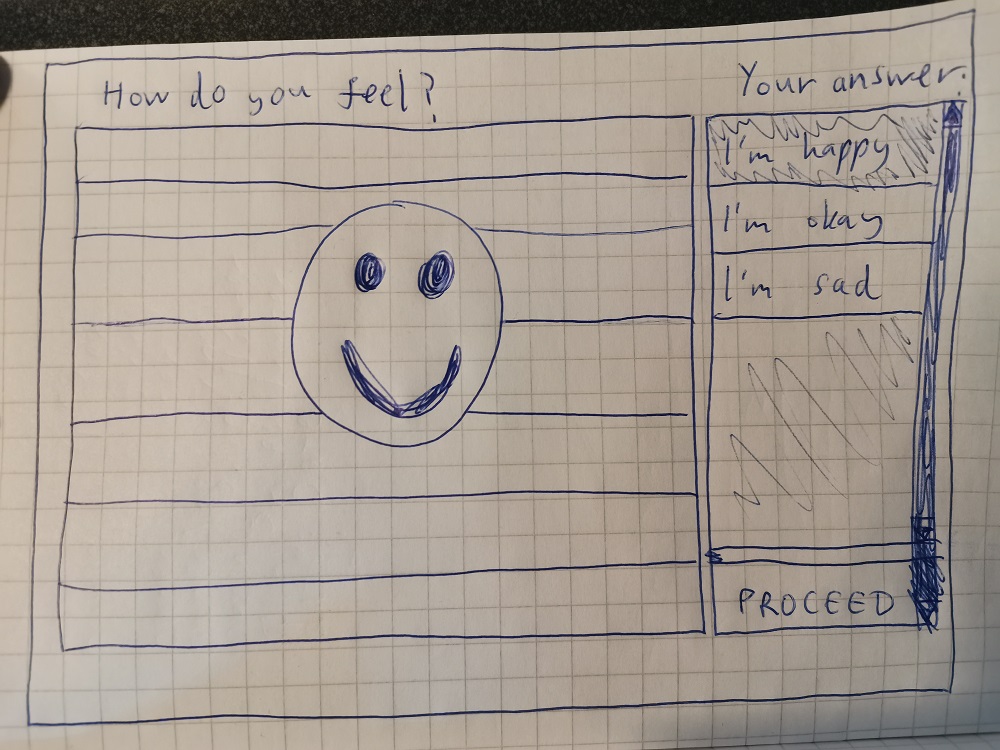 How do you feel?
Your answer:
I'm happy
I'm okay
I'm sad
PROCEED